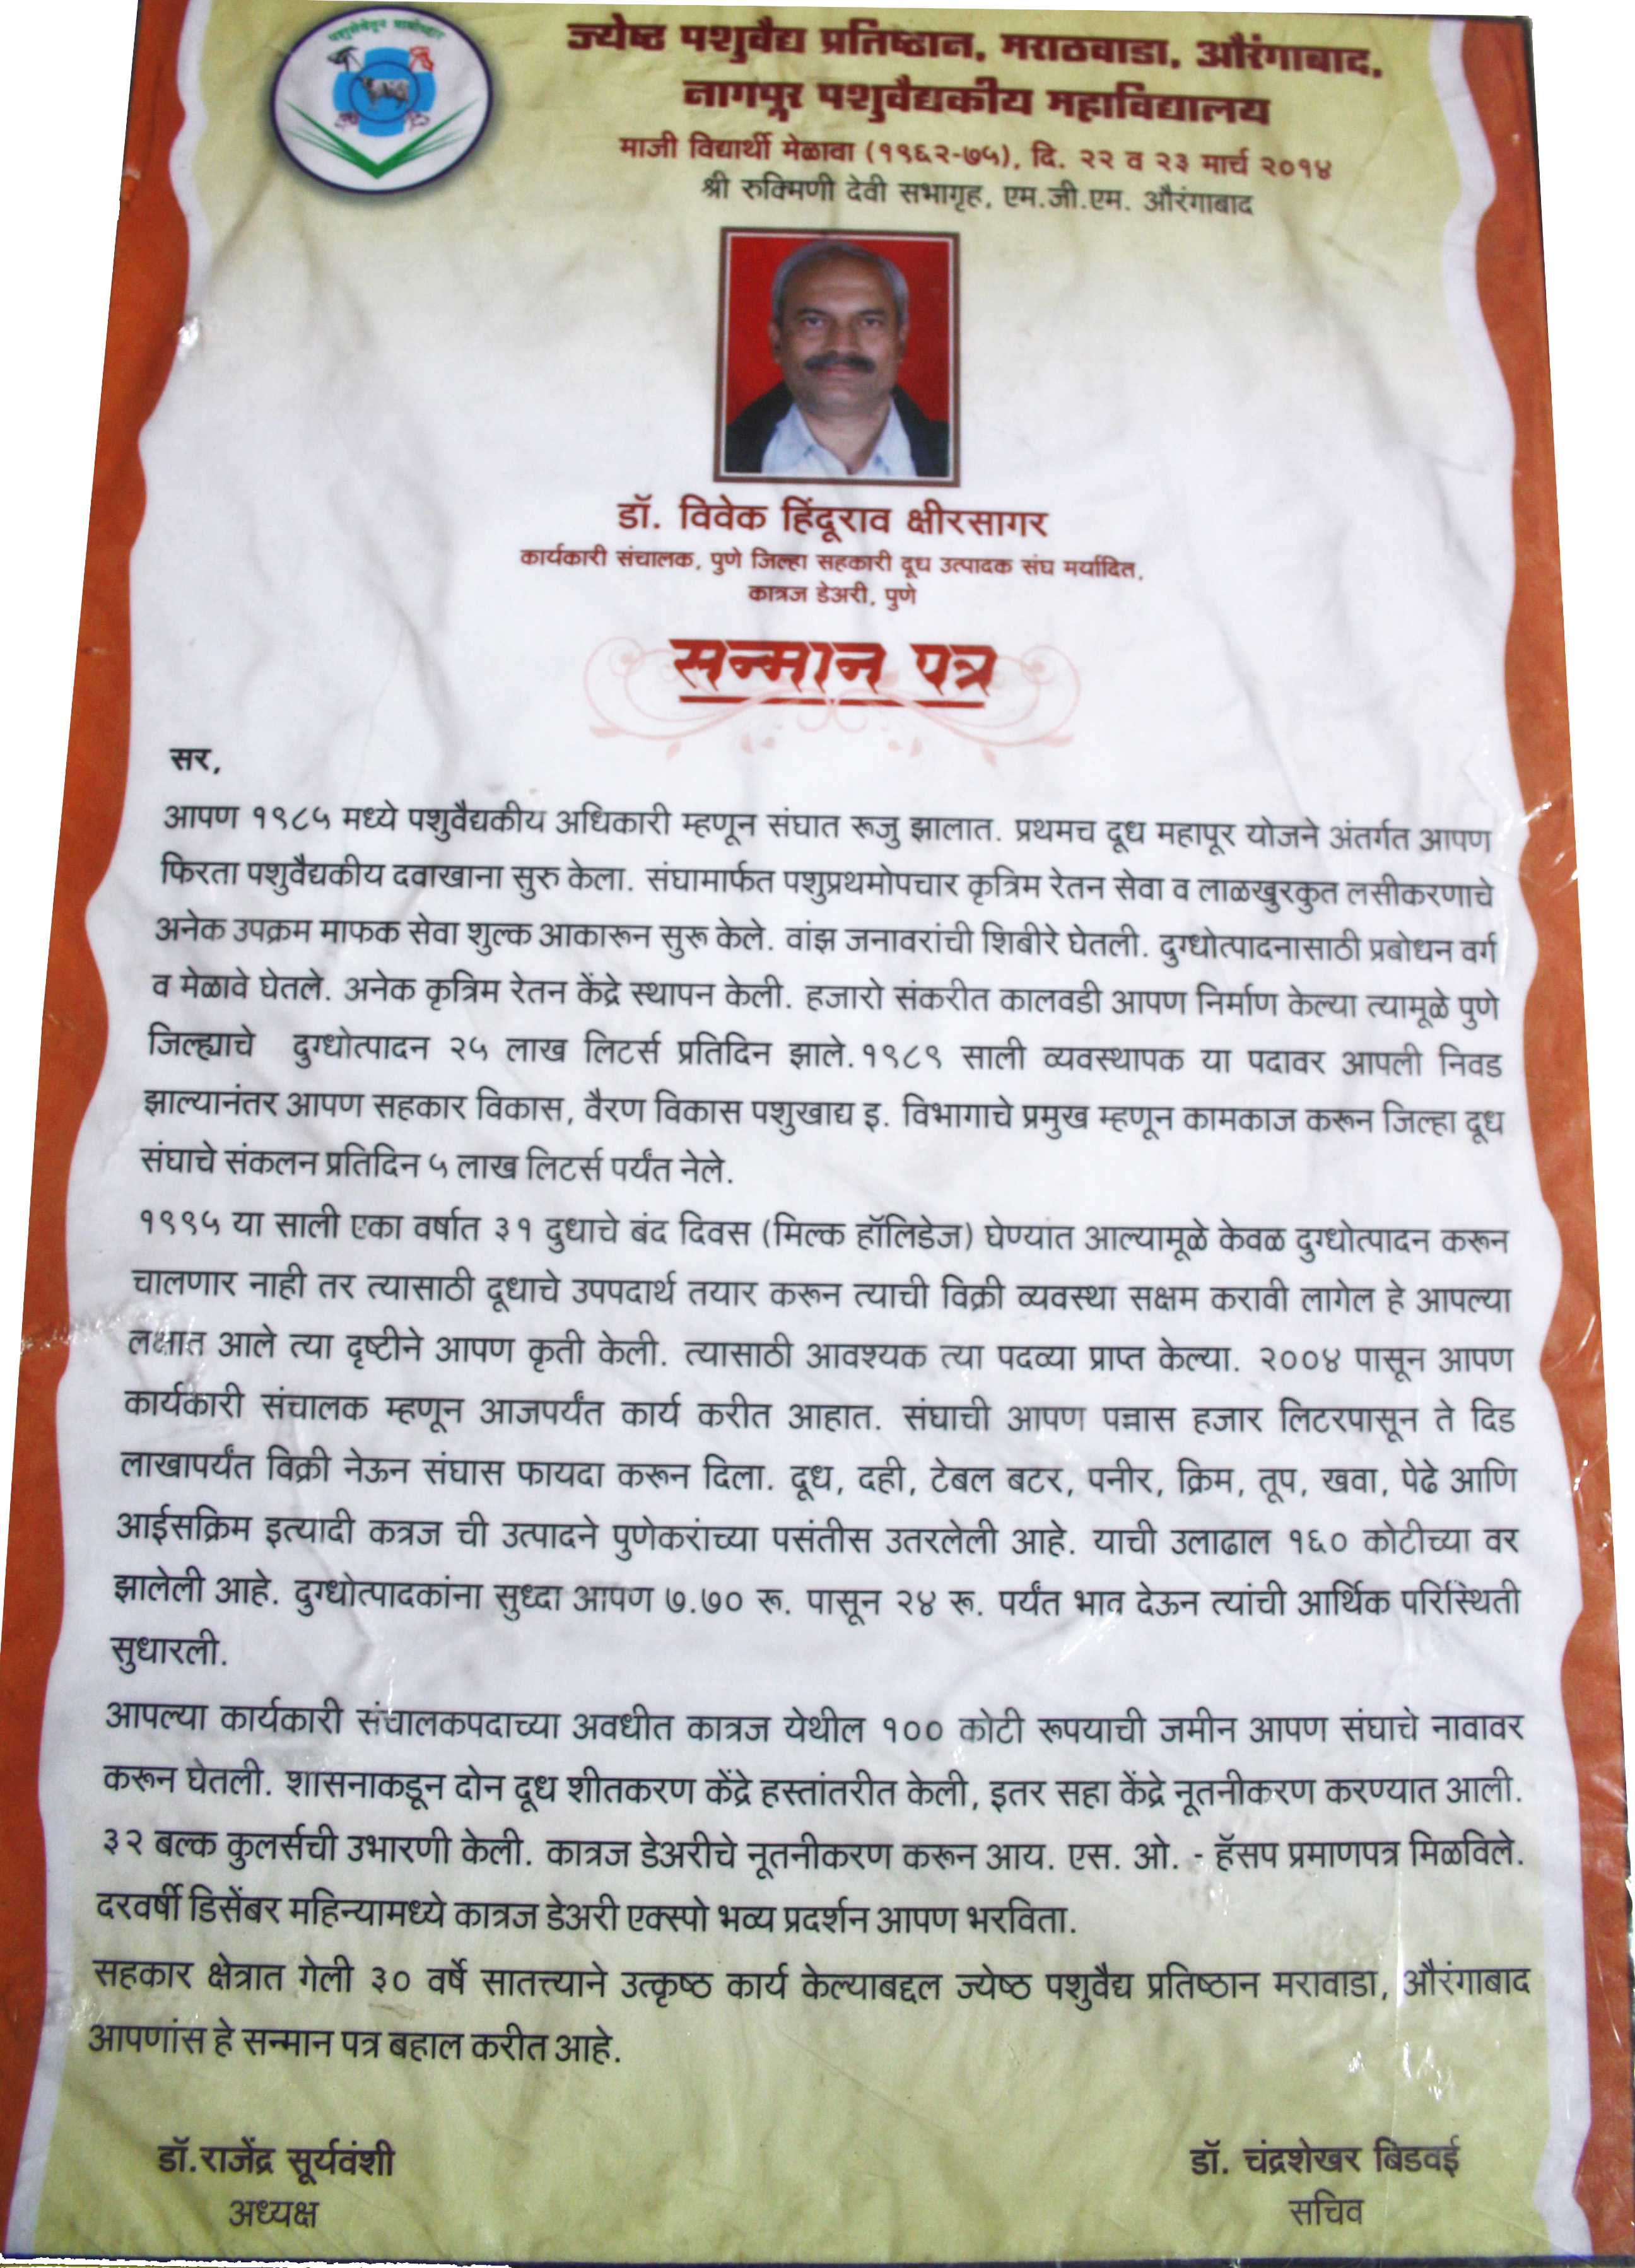 पशुसेवेतून ग्रामोध्दार
ज्येष्ठ पशुवैद्य प्रतिष्ठान, मराठवाडा, औरंगाबाद,
नागपूर पशुवैद्यकीय महाविद्यालय
माजी विद्यार्थी मेळावा (१९६२-७५), दि. २२ व २३ मार्च २०१४
श्री रुक्मिणी देवी सभागृह, एम.जी.एम. औरंगाबाद
डॉ. विवेक हिंदूराव क्षीरसागर
कार्यकारी संचालक, पुणे जिल्हा सहकारी दूध उत्पादक संघ मर्यादित,
कात्रज डेअरी, पुणे
सन्मान पत्र
सर,
आपण १९८५ मध्ये पशुवैद्यकीय अधिकारी म्हणून संघात रूजु झालात. प्रथमच दूध महापूर योजने अंतर्गत आपण
फिरता पशुवैद्यकीय दवाखाना सुरु केला. संघामार्फत पशुप्रथमोपचार कृत्रिम रेतन सेवा व लाळखुरकुत लसीकरणाचे
अनेक उपक्रम माफक सेवा शुल्क आकारून सुरू केले. वांझ जनावरांची शिबीरे घेतली. दुग्धोत्पादनासाठी प्रबोधन वर्ग
व मेळावे घेतले. अनेक कृत्रिम रेतन केंद्रे स्थापन केली. हजारो संकरीत कालवडी आपण निर्माण केल्या त्यामूळे पुणे
जिल्ह्याचे दुग्धोत्पादन २५ लाख लिटर्स प्रतिदिन झाले.१९८९ साली व्यवस्थापक या पदावर आपली निवड
झाल्यानंतर आपण सहकार विकास, वैरण विकास पशुखाद्य इ. विभागाचे प्रमुख म्हणून कामकाज करून जिल्हा दूध
संघाचे संकलन प्रतिदिन ५ लाख लिटर्स पर्यंत नेले.
१९९५ या साली एका वर्षात ३१ दुधाचे बंद दिवस (मिल्क हॉलिडेज) घेण्यांत आल्यामूळे केवळ दुग्धोत्पादन करून
चालणार नाही तर त्यासाठी दूधाचे उपपदार्थ तयार करून त्याची विक्री व्यवस्था सक्षम करावी लागेल हे आपल्या
लक्षात आले त्या दृष्टीने आपण कृती केली. त्यासाठी आवश्यक त्या पदव्या प्राप्त केल्या. २००४ पासून आपण
कार्यकारी संचालक म्हणून आजपर्यंत कार्य करीत आहात. संघाची आपण पन्नास हजार लिटरपासून ते दिड
लाखापर्यंत विक्री नेऊन संघास फायदा करून दिला. दूध, दही, टेबल बटर, पनीर, क्रिम, तूप, खवा, पेढे आणि
आईसक्रिम इत्यादी कत्रज ची उत्पादने पुणेकरांच्या पसंतीस उतरलेली आहे. याची उलाढाल १६० कोटीच्या वर
झालेली आहे. दुग्धोत्पादकांना सुध्दा आपण ७.७० रू. पासून २४ रू. पर्यंत भाव देऊन त्यांची आर्थिक परिस्थिती
सुधारली.
आपल्या कार्यकारी संचालकपदाच्या अवधीत कात्रज येथील १०० कोटी रूपयाची जमीन आपण संघाचे नावावर
करून घेतली. शासनाकडून दोन दूध शीतकरण केंद्रे हस्तांतरीत केली, इतर सहा केंद्रे नूतनीकरण करण्यात आली.
३२ बल्क कुलर्सची उभारणी केली. कात्रज डेअरीचे नूतनीकरण करून आय. एस. ओ. - हॅसप प्रमाणपत्र मिळविले.
दरवर्षी डिसेंबर महिन्यामध्ये कात्रज डेअरी एक्स्पो भव्य प्रदर्शन आपण भरविता.
सहकार क्षेत्रात गेली ३० वर्षे सातत्त्याने उत्कृष्ठ कार्य केल्याबद्दल ज्येष्ठ पशुवैद्य प्रतिष्ठान मरावाडा, औरंगाबाद
आपणांस हे सन्मान पत्र बहाल करीत आहे.
डॉ.राजेंद्र सूर्यवंशी
अध्यक्ष
डॉ. चंद्रशेखर बिडवई
सचिव